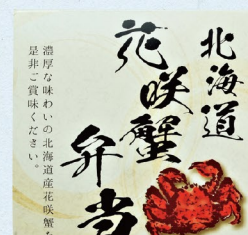 北海道
花咲蟹
弁当
濃厚な味わいの北海道産花咲蟹を
是非ご賞味ください。